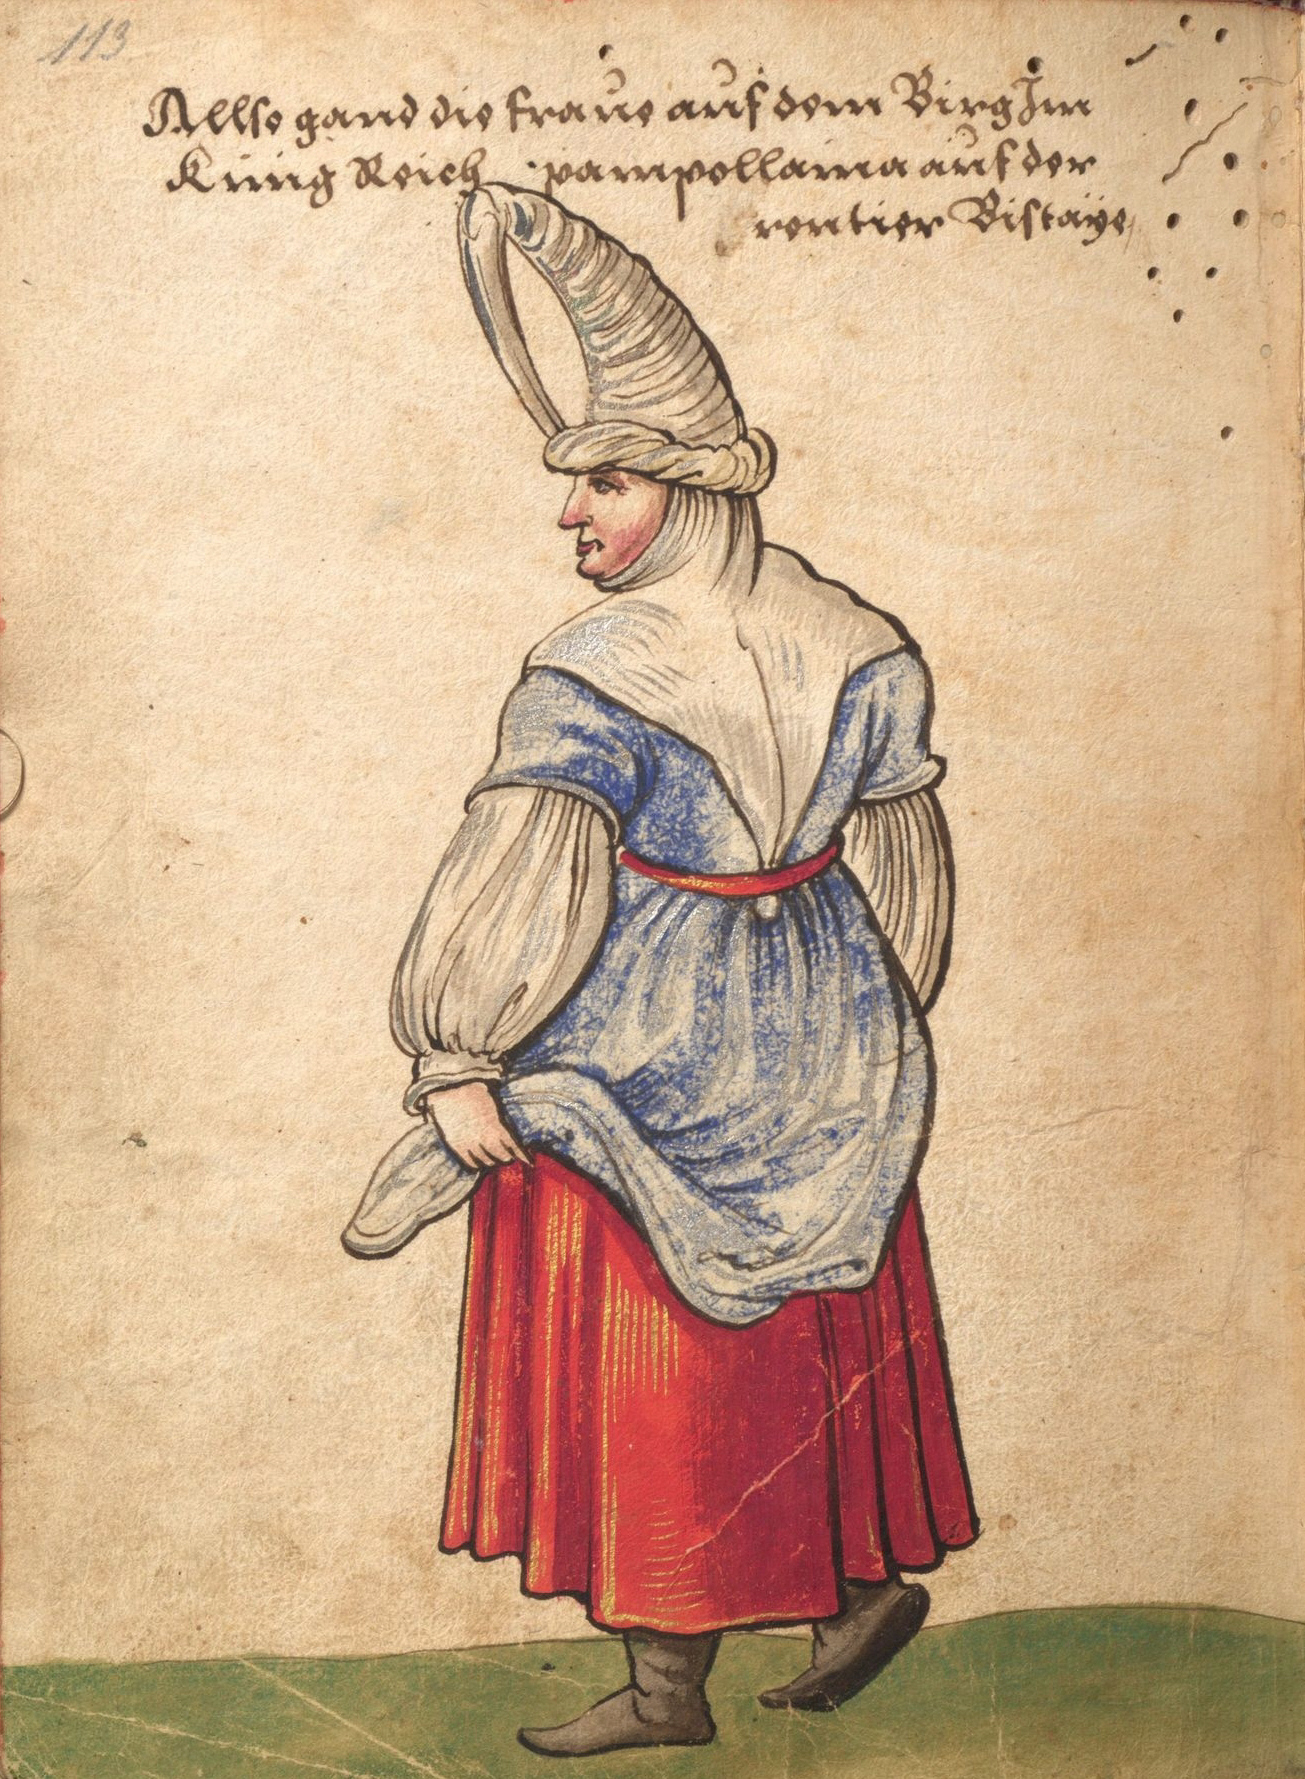 113
Allso gand die fraue auf dem Birg Im
Kunig Reich pampollaina auf der
rontier Biskaÿe